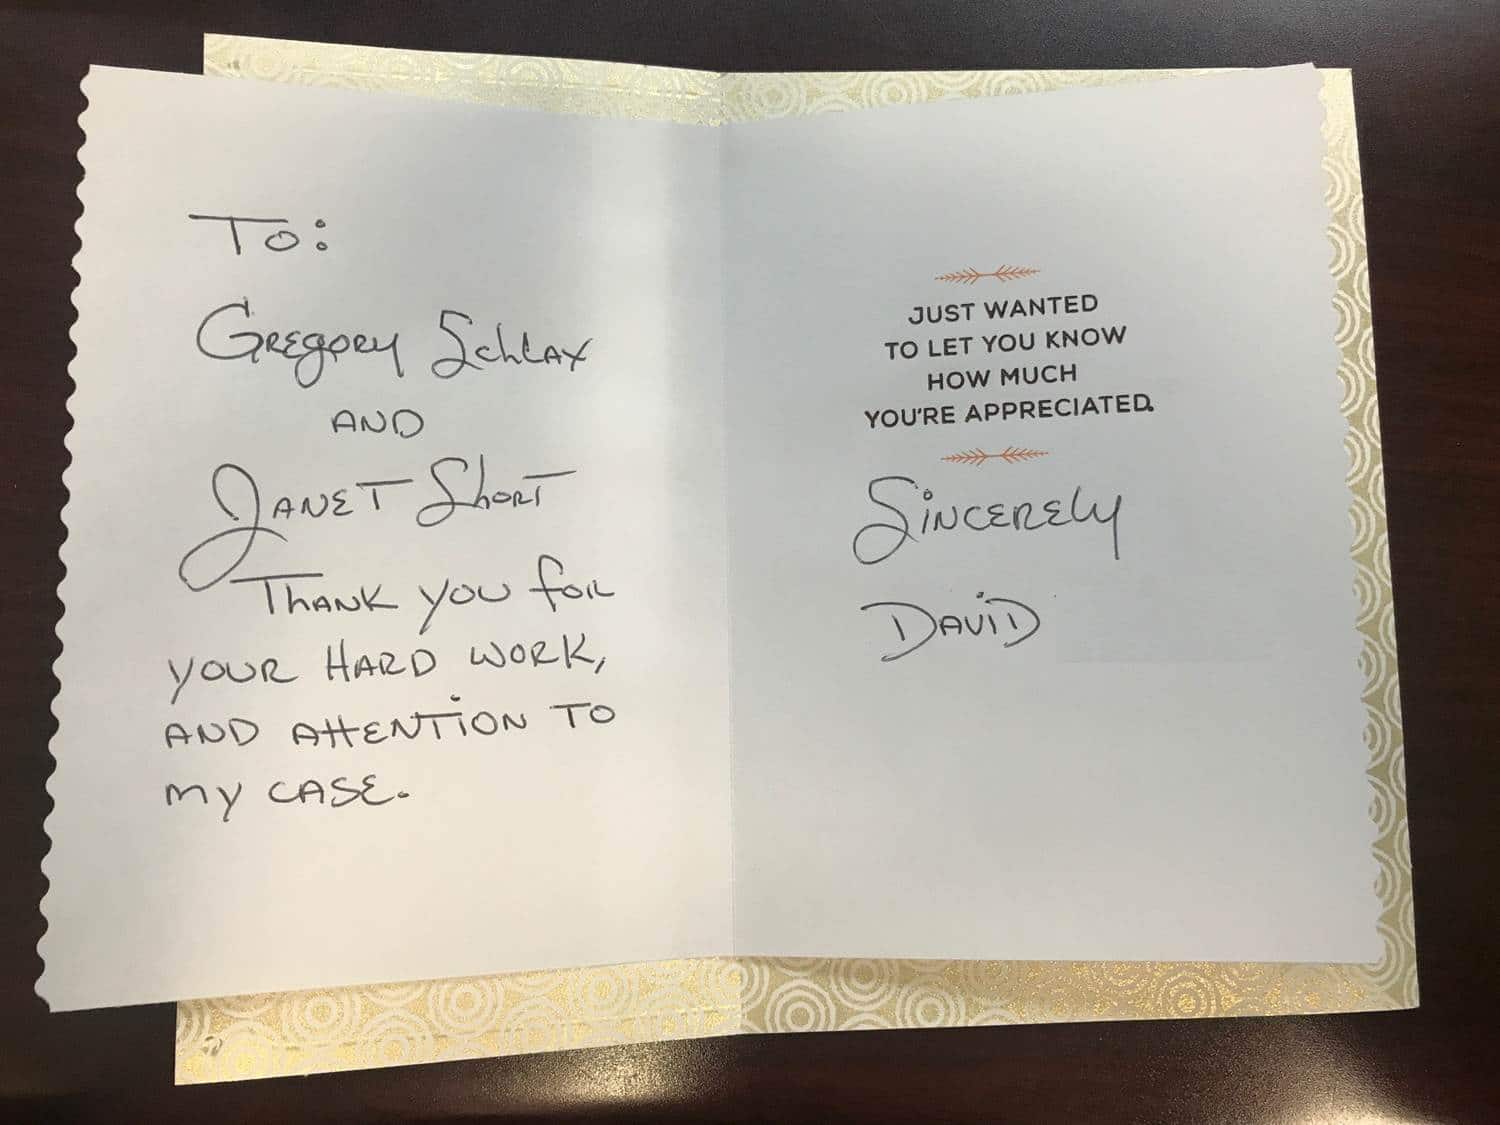 To:
Gregory Schlax
AND
JANET Short
THANK you foR
youR HARD woRK,
AND AttENTiON TO
my CASE.
JUST WANTED
TO LET YOU KNOW
HOW MUCH
YOU'RE APPRECIATED.
SiNCERELy
DAViD